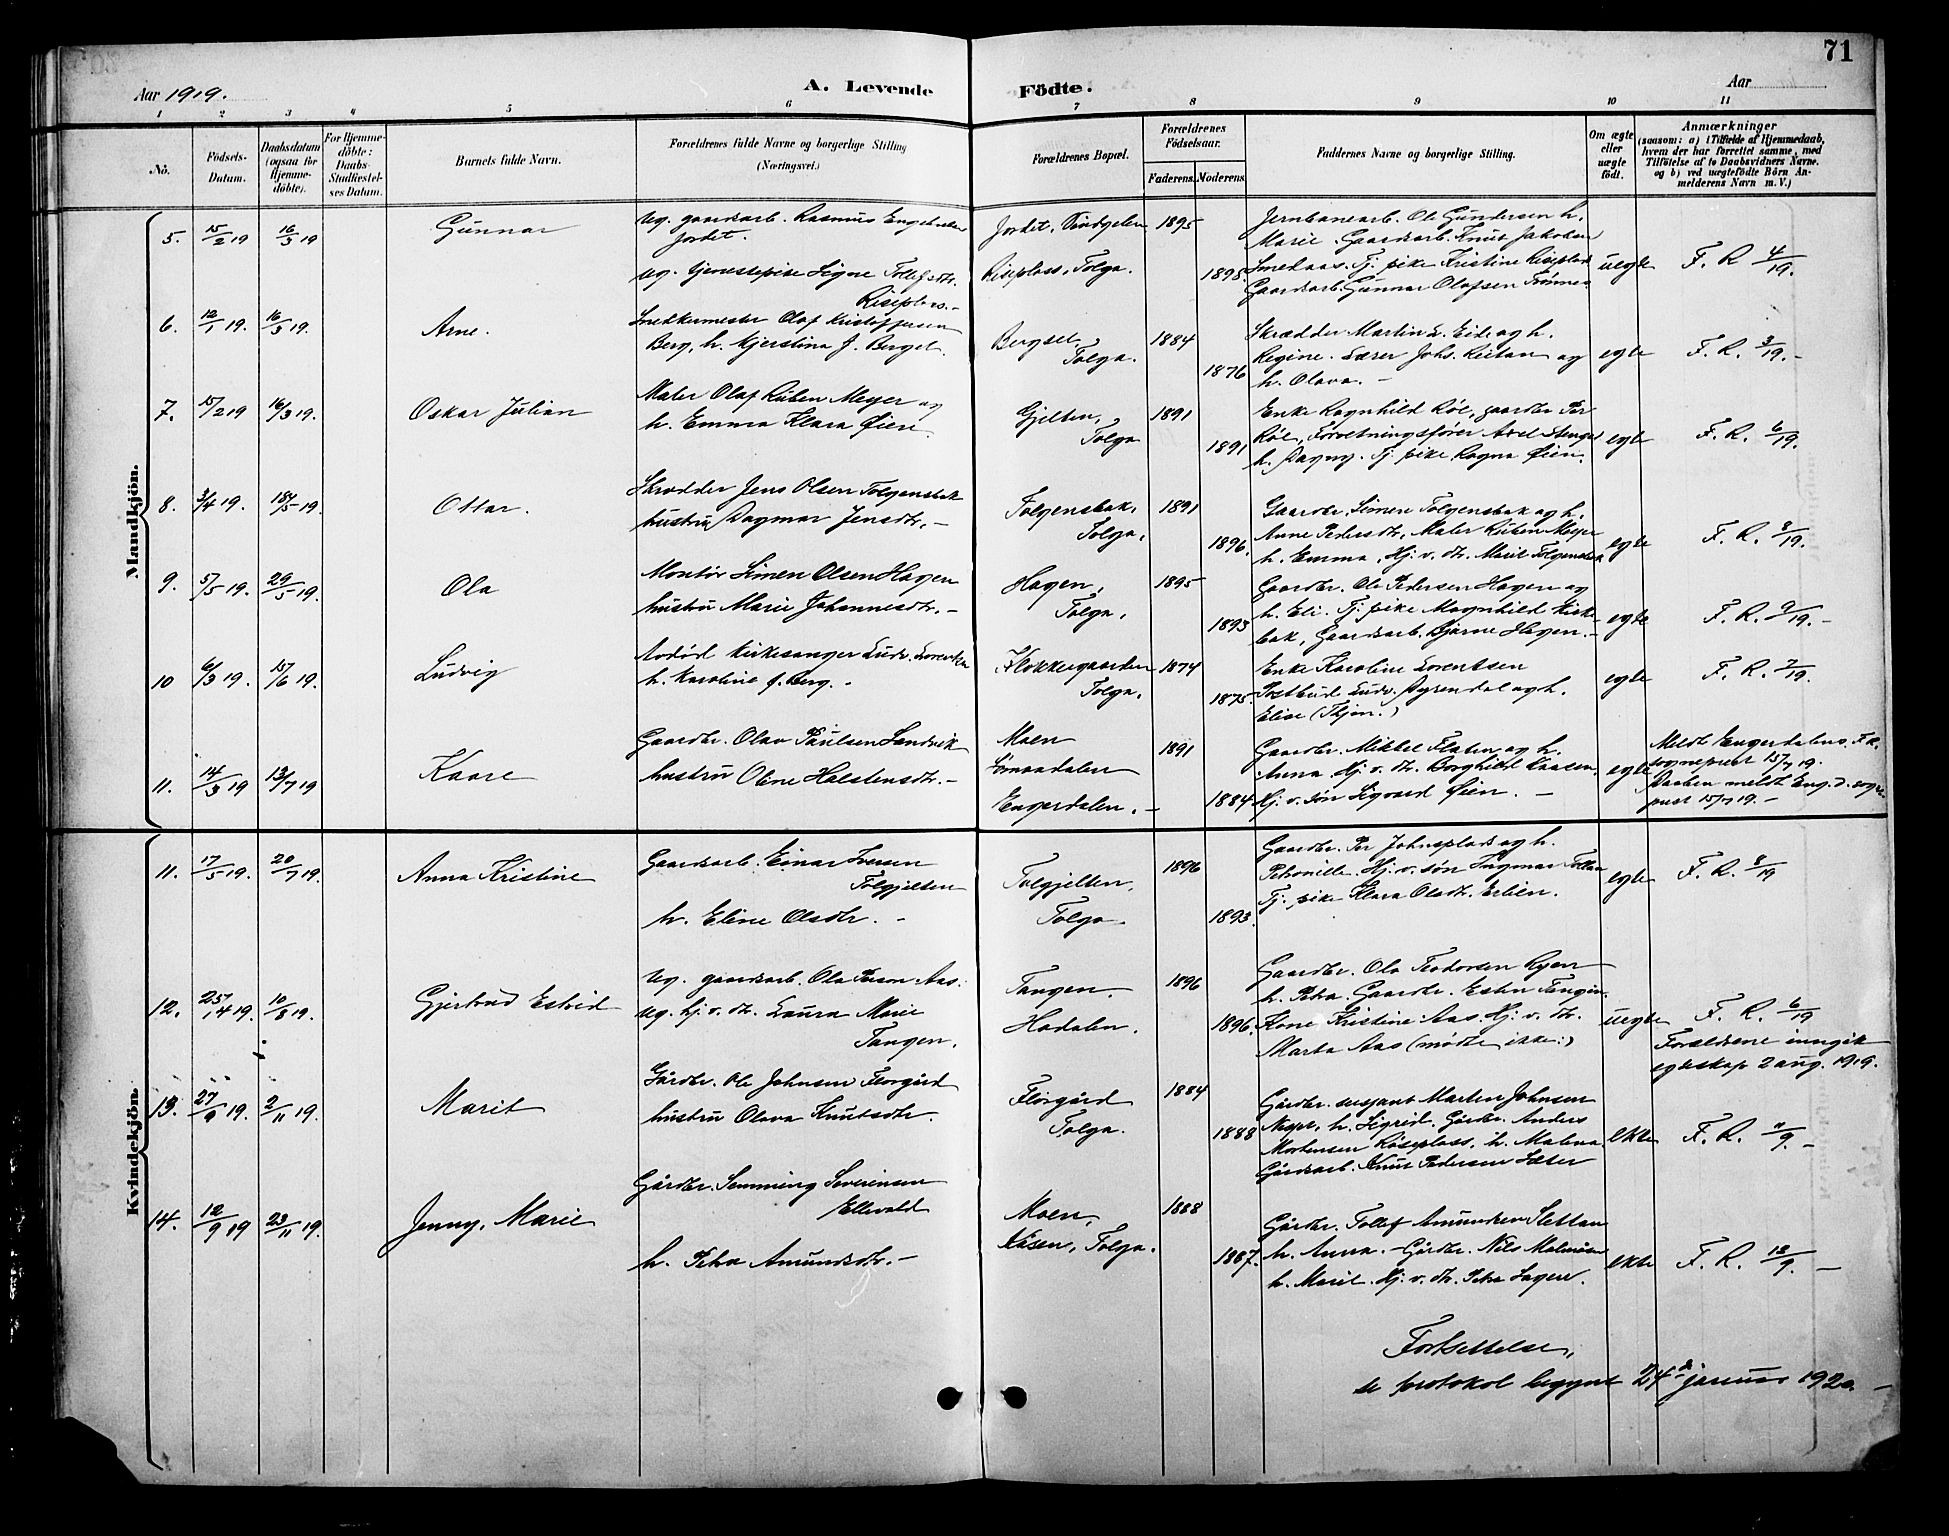 71
Aar 1919.
A. Levende Födte.
Aar
1 2 3 4 5 6 7 8 9 10 11
No.
Födsels-Datum.
Daabsdatum (ogsaa for Hjemme-döbte).
For Hjemme-döbte: Daabs-Stadfestel-ses Datum.
Barnets fulde Navn.
Forældrenes fulde Navne og borgerlige Stilling
(Næringsvei.)
Forældrenes Bopæl.
Forældrenes Födselsaar.
Faderens. Moderens.
Faddernes Navne og borgerlige Stilling.
Om ægte eller uægte födt.
Anmærkninger
(saasom: a) i Tilfælde af Hjemmedaab,
hvem der har forrettet samme, med
Tilföielse af to Daabsvidners Navne.
og b) ved uægtefödte Börn An-
melderens Navn m. V.)
Mandkjön.
5. 15/2 19 16/3 19 Gunnar
Ug. gaardsarb. Rasmus
Jordet.
Ug. tjenestepike Signe
Riseplass.-
Jordet,
Riseplass, Tolga.
1895
1898.
Jernbanearb. Ole Gundersen h.
Marie. Gaardsarb. Knut Jakobsen
Smedaas. Tj. pike Kristine Riseplass
Gaardsarb. Gunnar Olafsen
uegte F. R. 4/19.
6. 12/1 19. 16/3 19. Arne.
Smedkermester Olaf Kristoffersen
Berg, h. Kjerstina J. Berget.
Bergset,
Tolga.
1884
1876
Skrædder Martin E. Eide og h.
Regine. Lærer Johs. Reitan og
h. Olava. -
egte F. R. 3/19.-
7. 15/2 19 16/3 19. Oskar Julian
Maler Olaf Ruben Meyer og
h. Emma Klara Øien.
Gjelten,
Tolga
1891
1891
Enke Ragnhild Røe, gaardbr Per
Røe, Forretningsfører Axel
h. Dagny. Tj. pike Ragna Øien.
egte F. R. 6/19.
8. 3/4 19. 18/5 19. Ottar.
Skrædder Jens Olsen Tolgensbak
hustru Dagmar Jensdtr. -
Tolgensbak,
Tolga.
1891
1896.
Gaardbr. Simen Tolgensbak og h.
Anne Pedersdtr, Maler Ruben Meyer
h. Emma, Hj. v. dtr. Marit Tolgensbak
egte F. R. 8/19.
9. 5/5 19. 29/5 19. Ola
Montør Simen Olsen Hagen
hustru Marie Johannesdtr. -
Hagen,
Tolga.
1895
1893
Gaardbr. Ole Pedersen Hagen og
h. Eli. Tj. pike Magnhild Kirke-
bak, Gaardsarb. Bjarne Hagen. -
egte F. R. 9/19. -
10 6/3 19. 15/6 19. Ludvig
Avdød Kirkesanger Ludv. Lorentsen
h. Karoline f. Berg. -
Klokkergaarden
Tolga.
1874
1875.
Enke Karoline Lorentsen
Postbud Ludv. Dyrendal og h.
Elise
egte F. R. 7/19.
11. 14/3 19 13/7 19 Kaare
Gaardbr. Olav Paulsen Sandvik
hustru Oline Halstensdtr. -
Moen
Sømaadalen
Engerdalen. -
1891
1884
Gaardbr. Mikkel Flaten og h.
Anna Hj. v. dtr. Borghild Kaasen,
Hj. v. søn Sigvard Øien. -
egte
Meldt Engerdalens F.R.
sogneprest 15/7 19.
Daaben meldt Eng.d. sogne-
prest 15/7 19. -
Kvindekjön.
11. 17/5 19. 20/7 19. Anna Kristine
Gaardsarb. Einar Iversen
Tolgjelten
h. Eline Olsdtr. -
Tolgjelten,
Tolga
1896
1893.
Gaardbr. Per Johnsplads og h.
Petronille. Hj. v. søn Ingmar
Tj. pike Klara Olsdtr. Erlien.
egte F. R. 8/19
12. 25/4 19. 10/8 19. Gjertrud Estrid
Ug. gaardsarb. Ola Person Aas.
Ug. hj. v. dtr. Laura Marie
Tangen.
Tangen.
Hodalen.
1896
1896.
Gaardbr. Ola Teodorsen Ryen
h. Petra. Gaardbr. Esten Tangen.
Kone Kristine Aas. Hj. v. dtr.
Marta Aas (mødte ikke:)
uegte F. R. 6/19
Forældrene inngik
egteskap 2 aug. 1919.
13. 27/9 19. 2/11 19. Marit
Gårdbr. Ole Johnsen Florgård
hustru Olava Knutsdtr.
Florgård
Tolga.
1884
1888
Gårdbr. sersjant Morten Johnsen
h. Sigrid. Gårdbr. Anders
Mortensen Riseplass, h. Malena
Gårdsarb. Knut Pedersen Sæter
ekte F. R. 11/9. -
14. 12/9 19 23/11 19. Jenny, Marie
Gårdbr. Semming Severinsen
Ellevold
h. Petra Amundsdtr. -
Moen,
Kåsen, Tolga.
1888
1887.
Gårdbr. Tollef Amundsen Slettan
h. Anna. - Gårdbr. Nils
h. Marit. Hj. v. dtr. Petra
ekte F. R. 13/9. -
Fortsettelse,
se protokol begynt 24de januar 1920. -